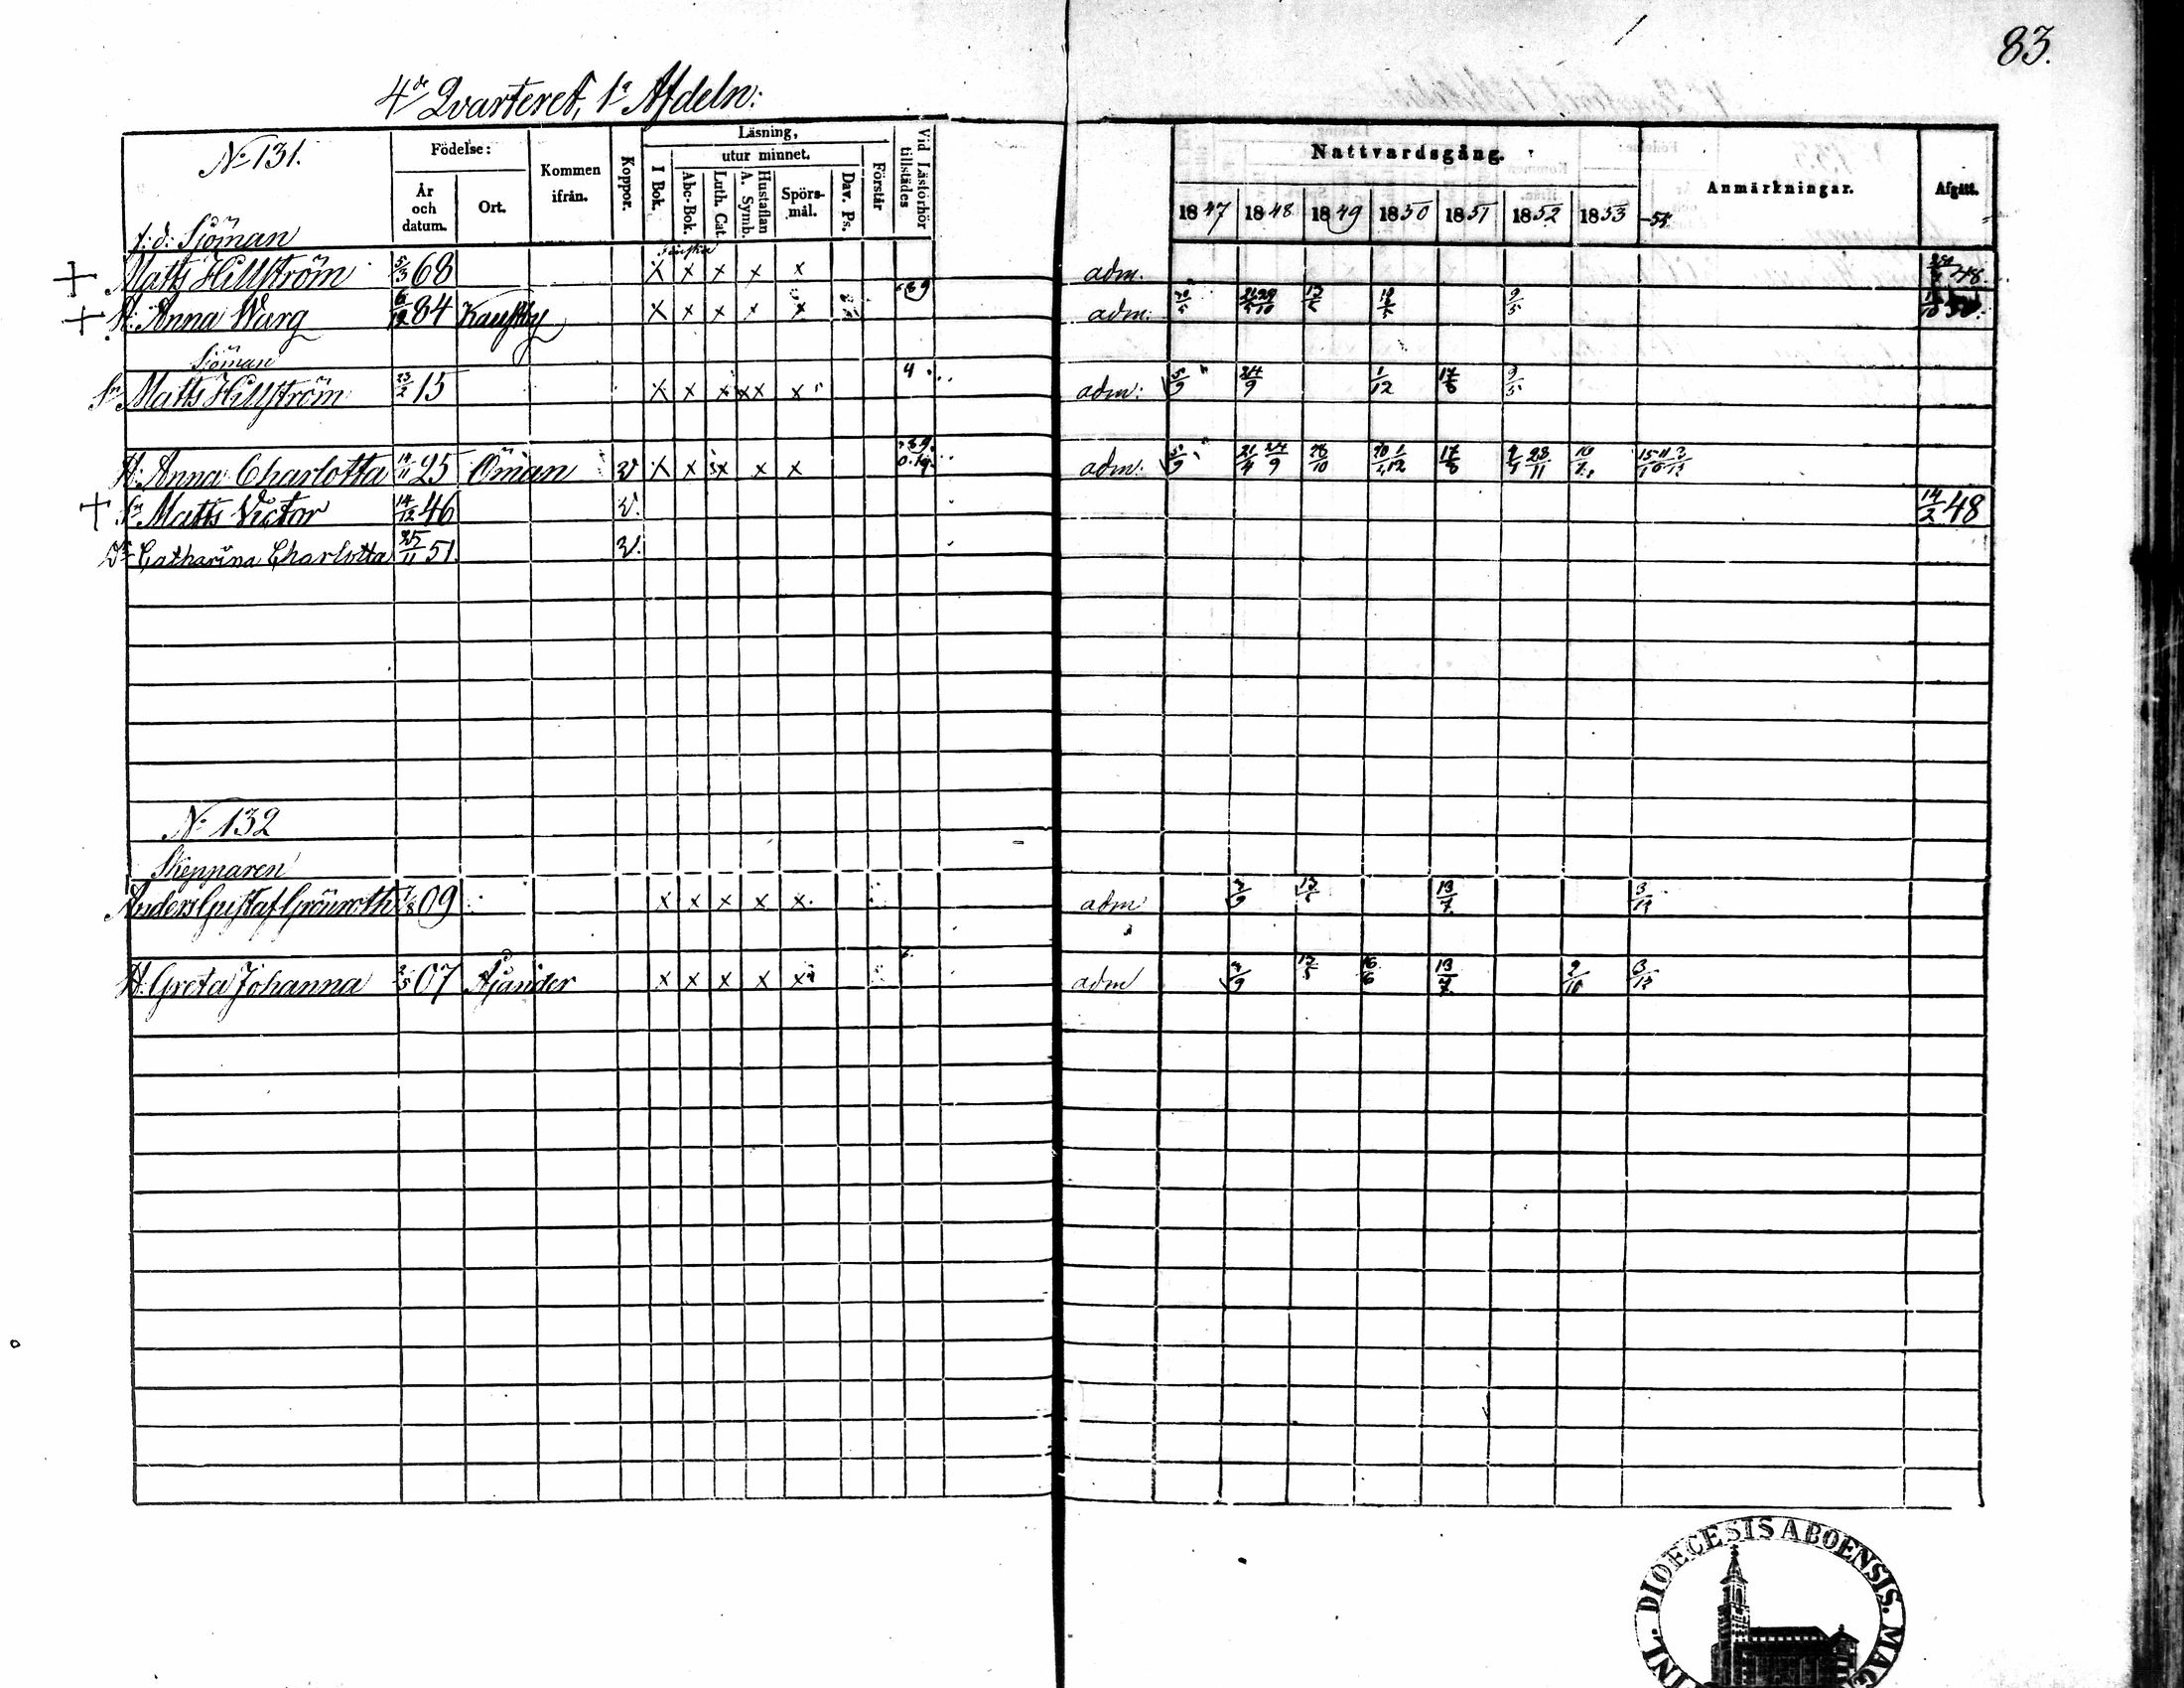 83.
4de Qvarteret, 1a Afdeln:
No 131. Födelse: År och datum. Ort. Kommen ifrån. Koppor. Läsning, I Bok. utur minnet. Abc-Bok. Luth. Cat. Hustaflan A. Symb. Spörsmål. Dav. Ps. Förstår Vid Läsförhör tillstädes Nattvardsgång. 1847 1848 1849 1850 1851 1852 1853 -54 Anmärkningar. Afgått.
f: d: Sjöman
+ Matts Hillström 5/3 68 x x x x x adm. 48.
+ H: Anna Warg 6/12 84 x x x x x 39 adm: 9/5
Sjöman
Sn Matts Hillström 23/2 15 x x x xx x 4 adm: 5/9 24/9 1/12 17/8 9/5
H: Anna Charlotta 25 Öman v x x x x x adm: 5/9 24/9 28/10 1/12 17/8 28/11
+ Sn Matts Victor 14/12 46 v. 14/2 48
Dr Catharina Charlotta 25/11 51. v.
No 132
Skepparen
Anders Gustaf Grönroth 09 x x x x x adm 13/7 3/12
H: Greta Johanna 2/5 07 Ajander x x x x x adm 16/6 13/7 2/10 3/12
FINL. DIOECESIS ABOENSIS. MAG